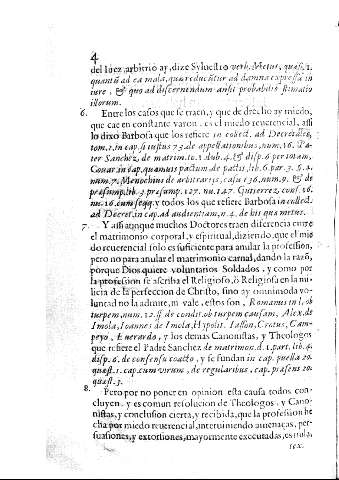 4
del Iuez, arbitrio ay, dize Syluestro verb. Metus, quæst. 2.
quantũ ad ea mala, quæ reducũtur ad damna expressa in
iure, & quo ad discernendum ansi probabilis æstimatio
illorum.
6. Entre los casos que se traen, y que de drecho ay miedo,
que cae en constante varon, es el miedo reuerencial, assi
lo dixo Barbosa que los refiere in collect. ad Decretales,
tom. 2. in cap. si iustus 73. de appellationibus, num. 16. Pa-
ter Sanchez, de matrim. to. 1. dub. 4. & disp. 6 per totam,
Couar. in cap. quamuis pactum de pactis, lib. 6. par. 3. §. 4.
num. 7. Menochius de arbitrarijs, casu 136. num. 9. & de
præsump. lib. 3. præsump. 127. nu. 147. Gutierrez, cons. 16.
nu. 16. cum seqq. y todos los que refiere Barbosa in collect.
ad Decret. in cap. ad audientiam, n. 4. de his quæ metus.
7. Y assi aunque muchos Doctores traen diferencia entre
el matrimonio corporal, y espiritual, diziendo que el mie
do reuerencial solo es suficiente para anular la profession,
pero no para anular el matrimonio carnal, dando la razõ,
porque Dios quiere voluntarios Soldados, y como por
la profession se ascriba el Religioso, ò Religiosa en la mi-
licia de la perfeccion de Christo, sino ay omnimoda vo-
luntad no la admite, ni vale, estos son, Romanus in l. ob
turpem, num. 12. ff. de condit. ob turpem causam, Alex. de
Imola, Ioannes de Imola, Hypolit. Iasson, Crotus, Cam-
peyo, Euerardo, y los demas Canonistas, y Theologos
que refiere el Padre Sanchez de matrimon. d. 1. part. lib. 4.
disp. 6. de consensu coacto, y se fundan in cap. puella 20.
quæst. 1. cap. cum virum, de regularibus, cap. præsens 20.
quæst. 3.
8. Pero por no poner en opinion esta causa todos con-
cluyen, y es comun resolucion de Theologos, y Cano-
nistas, y conclusion cierta, y recibida, que la profession he
cha por miedo reuerencial, interuiniendo amenaças, per-
suasiones, y extorsiones, mayormente executadas, es nula,